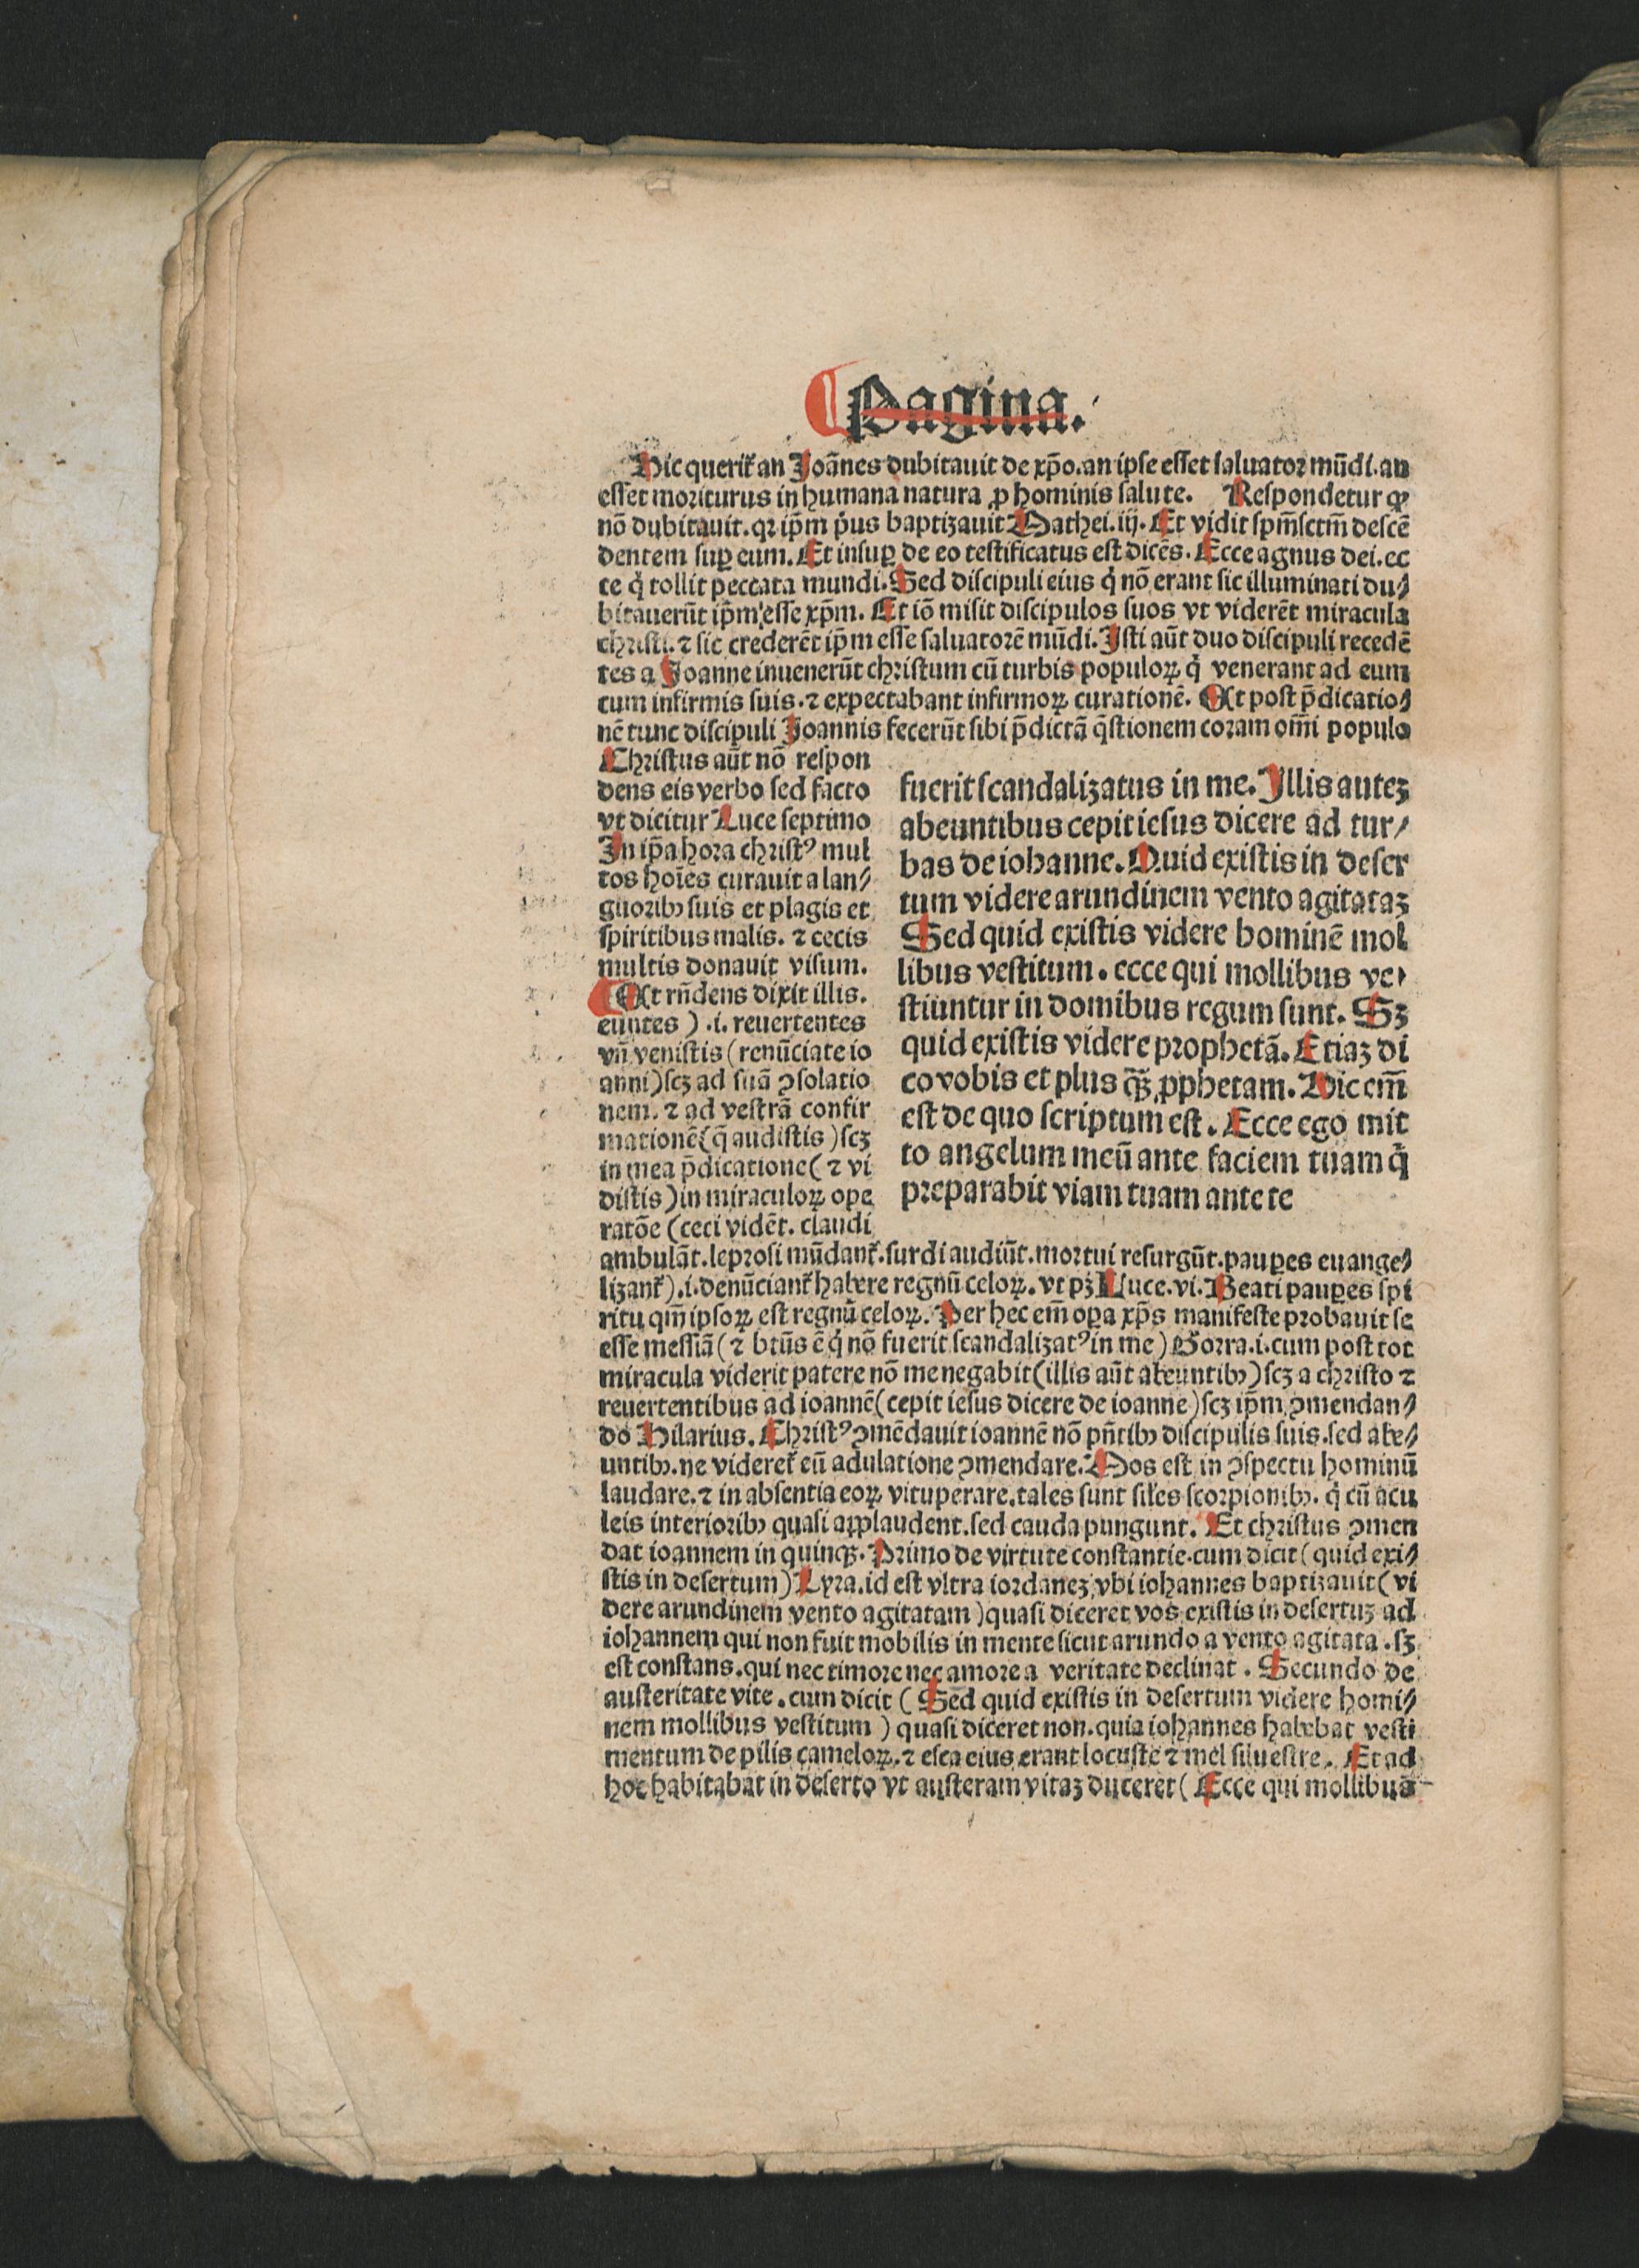 Pagina.
Hic querit̃ an Joãnes dubitauit de xp̃o.an ipse esset saluator mũdi.an
esset moriturus in humana natura ꝓ hominis salute. Respondetur ꝙ
nõ dubitauit.qꝛ ip̃m p̃us baptizauit Mathei.iij. Et vidit spm̃sctm̃ descẽ
dentem suꝑ eum. Et insuꝑ de eo testificatus est dicẽs. Ecce agnus dei.ec
ce q̇ tollit peccata mundi. Sed discipuli eius q̇ nõ erant sic illuminati du⸗
bitauerũt ip̃m esse xp̃m. Et iõ misit discipulos suos vt viderẽt miracula
christi.⁊ sic crederẽt ip̃m esse saluatorẽ mũdi. Isti aũt duo discipuli recedẽ
tes a Joanne inuenerũt christum cũ turbis populoꝝ q̇ venerant ad eum
cum infirmis suis.⁊ expectabant infirmoꝝ curationẽ. Et post p̃dicatio⸗
nẽ tunc discipuli Joannis fecerũt sibi p̃dictã q̃stionem coram om̃i populo
Christus aũt nõ respon
dens eis verbo sed facto
vt dicitur Luce septimo
In ip̃a hora christꝰ mul
tos hoĩes curauit a lan⸗
guoribꝫ suis et plagis et
spiritibus malis. ⁊ cecis
multis donauit visum.
Et rñdens dixit illis.
euntes ) .i. reuertentes
vñ venistis (renũciate io
anni)scꝫ ad suã ꝯsolatio
nem. ⁊ ad vestrã confir
mationẽ(q̃ audistis)scꝫ
in mea p̃dicatione( ⁊ vi
distis)in miraculoꝝ ope
ratõe (ceci vidẽt. claudi
fuerit scandalizatus in me. Illis auteꝫ
abeuntibus cepit iesus dicere ad tur⸗
bas de iohanne. Quid existis in deser
tum videre arundinem vento agitataꝫ
Sed quid existis videre hominẽ mol
libus vestitum. ecce qui mollibus ve⸗
stiuntur in domibus regum sunt. Sꝫ
quid existis videre prophetã. Etiaꝫ di
co vobis et plus q̃ꝫ ꝓphetam. Hic em̃
est de quo scriptum est. Ecce ego mit
to angelum meũ ante faciem tuam q̇
preparabit viam tuam ante te
ambulãt.leprosi mũdant̃.surdi audiũt.mortui resurgũt.pauꝑes euange⸗
lizant̃).i.denũciant̃ habere regnũ celoꝝ. vt pꝫ Luce.vi. Beati pauꝑes spi
ritu qm̃ ipsoꝝ est regnũ celoꝝ. Per hec em̃ oꝑa xp̃s manifeste probauit se
esse messiã( ⁊ btũs ẽ q̇ nõ fuerit scandalizatꝰ in me) Gorra.i.cum post tot
miracula viderit patere nõ me negabit(illis aũt abeuntibꝫ)scꝫ a christo ⁊
reuertentibus ad ioannẽ(cepit iesus dicere de ioanne)scꝫ ip̃m ꝯmendan⸗
do Hilarius. Christꝰ ꝯmẽdauit ioannẽ nõ pñtibꝫ discipulis suis.sed abe⸗
untibꝫ.ne videret̃ eũ adulatione ꝯmendare. Mos est in ꝯspectu hominũ
laudare.⁊ in absentia eoꝝ vituperare.tales sunt sil̃es scorpionibꝫ. q̇ cũ acu
leis interioribꝫ quasi applaudent.sed cauda pungunt. Et christus ꝯmen
dat ioannem in quinqꝫ. Primo de virtute constantie.cum dicit (quid exi⸗
stis in desertum) Lyra.id est vltra iordaneꝫ vbi iohannes baptizauit(vi
dere arundinem vento agitatam)quasi diceret vos existis in desertuꝫ ad
iohannem qui non fuit mobilis in mente sicut arundo a vento agitata.sꝫ
est constans.qui nec timore nec amore a veritate declinat. Secundo de
austeritate vite.cum dicit ( Sed quid existis in desertum videre homi⸗
nem mollibus vestitum ) quasi diceret non.quia iohannes habebat vesti
mentum de pilis cameloꝝ.⁊ esca eius erant locuste ⁊ mel siluestre. Et ad
hoc habitabat in deserto vt austeram vitaꝫ duceret( Ecce qui mollibus